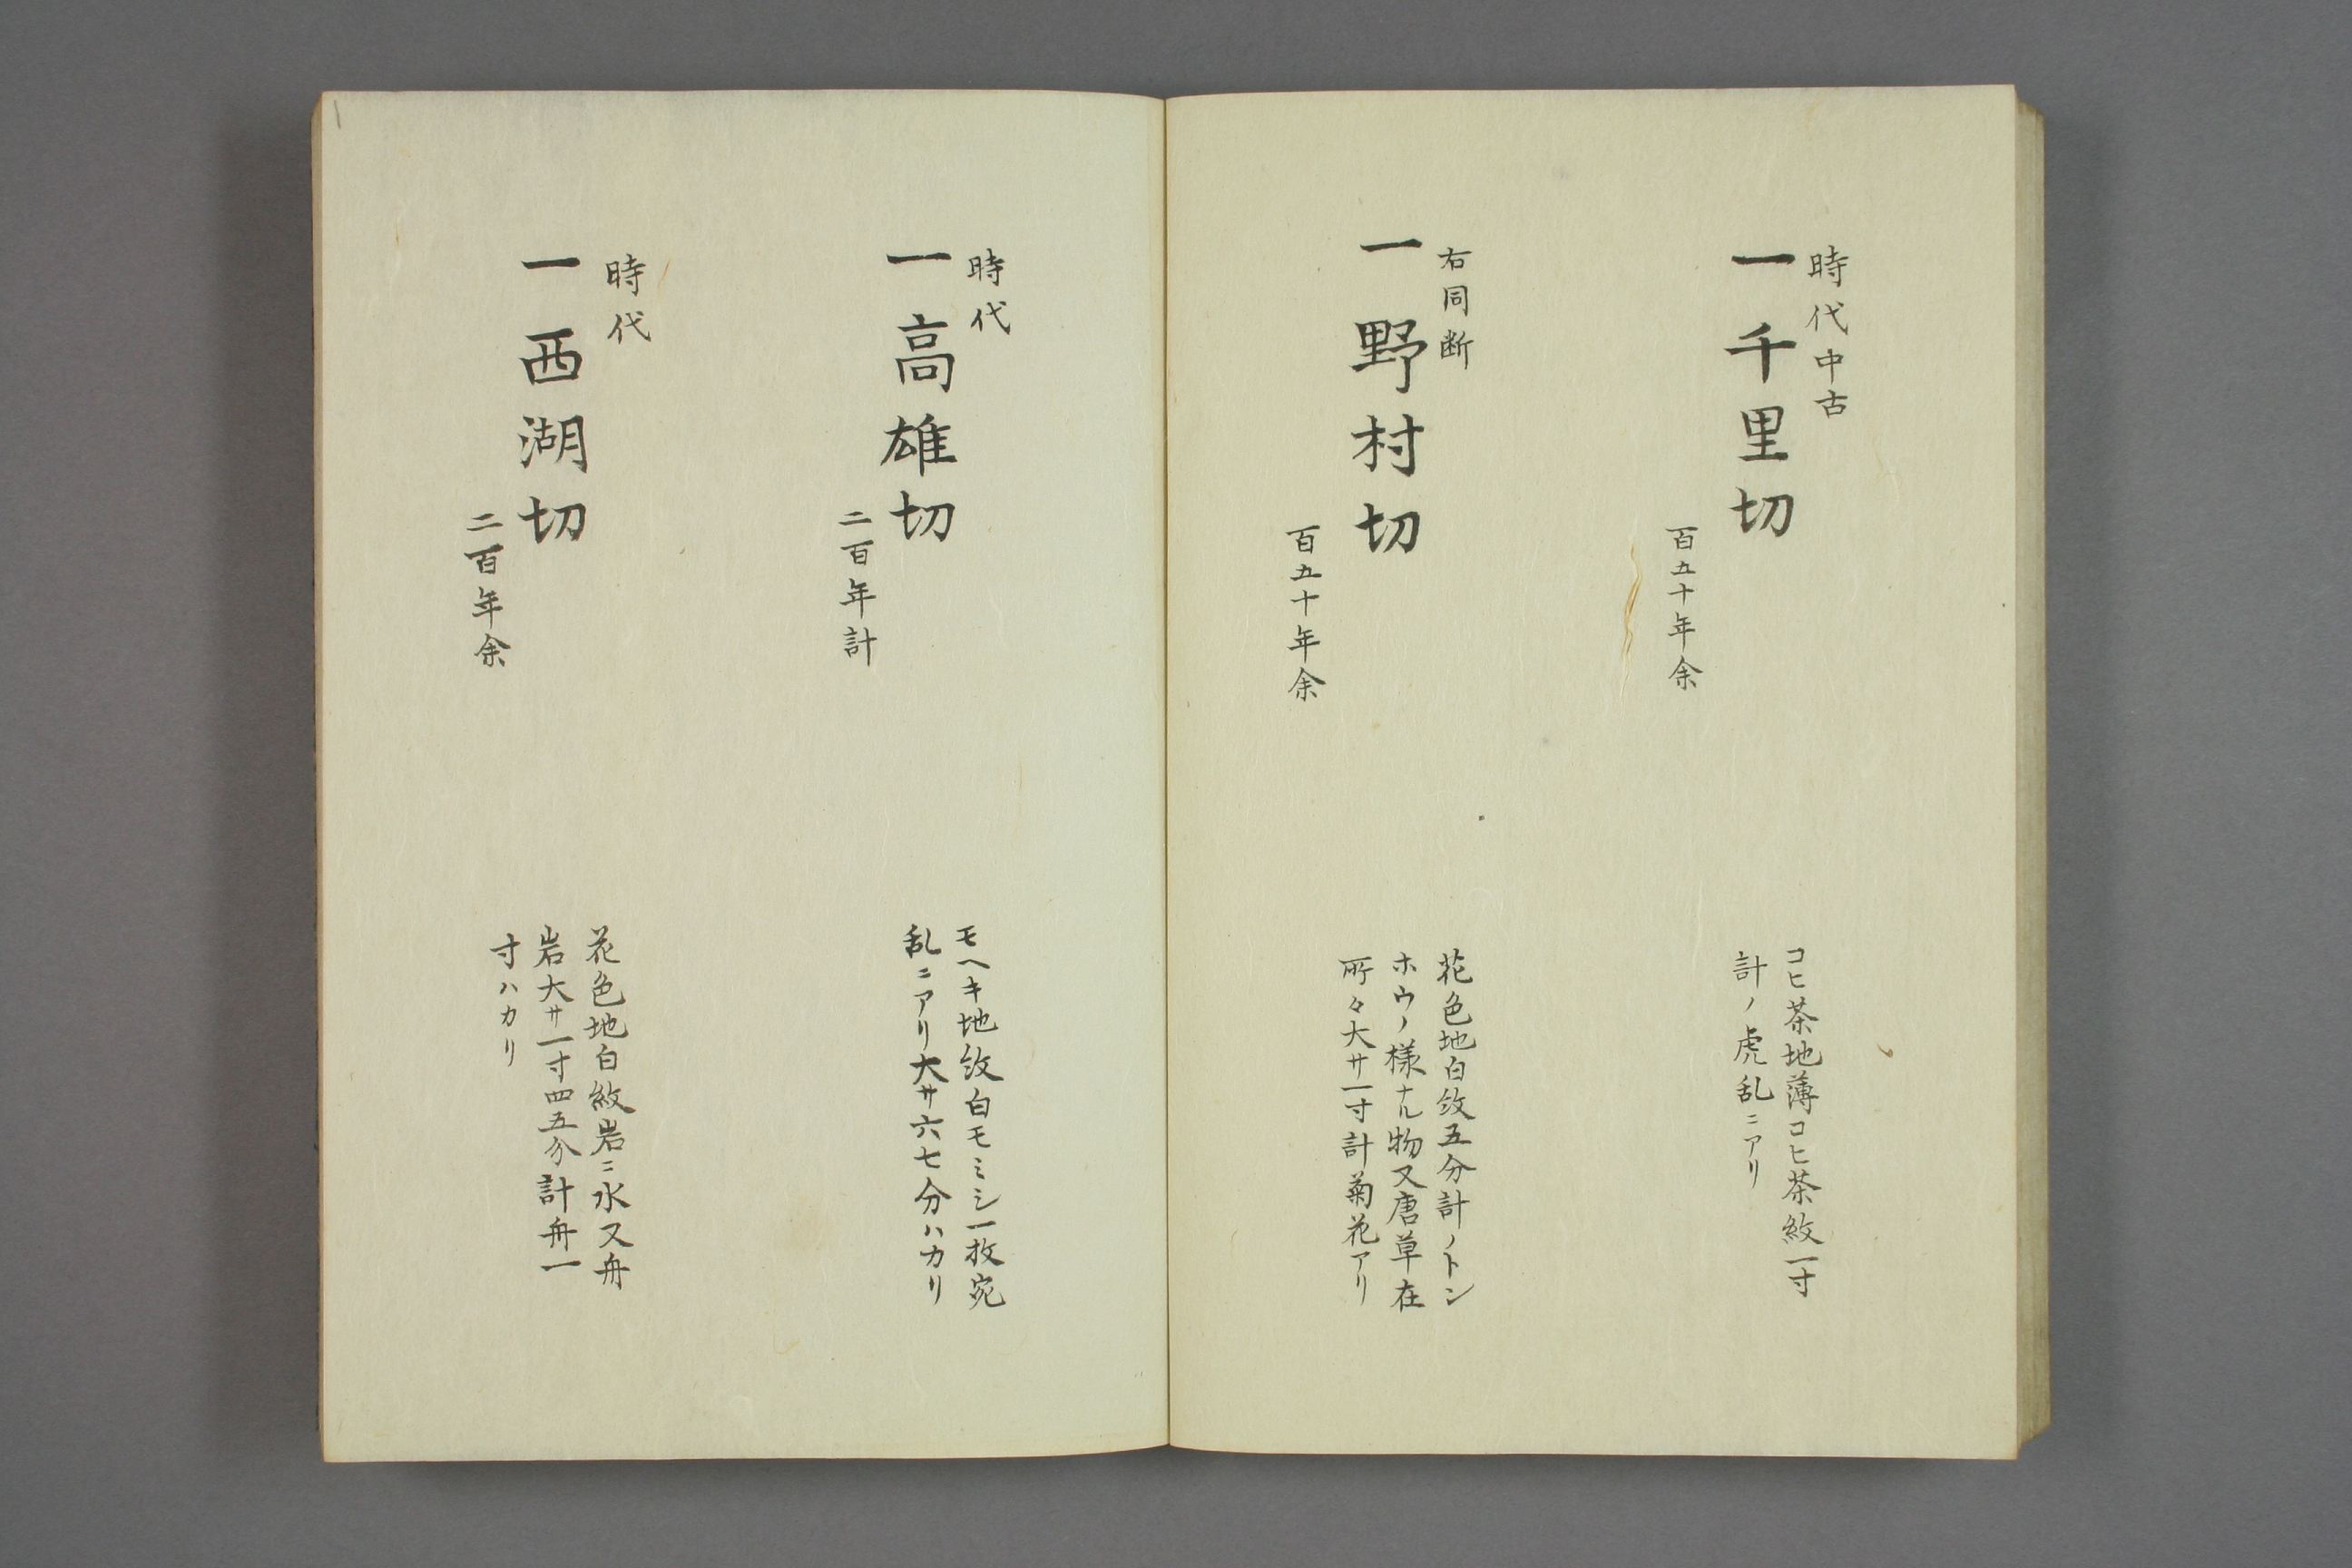 時代中古
一千里切
百五十年余
コヒ茶地薄コヒ茶紋一寸
計ノ虎乱ニアリ
右同断
一野村切
百五十年余
花色地白紋五分計ノトン
ホウノ様ナル物又唐草在
所々大サ一寸計菊花アリ
時代
一高雄切
二百年計
モヘキ地紋白モミシ一枚宛
乱ニアリ大サ六七分ハカリ
時代
一西湖切
二百年余
花色地白紋岩ニ水又舟
岩大サ一寸四五分計舟一
寸ハカリ